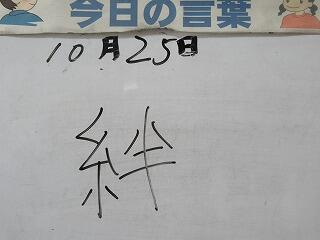 今日の言葉
10月25日
絆